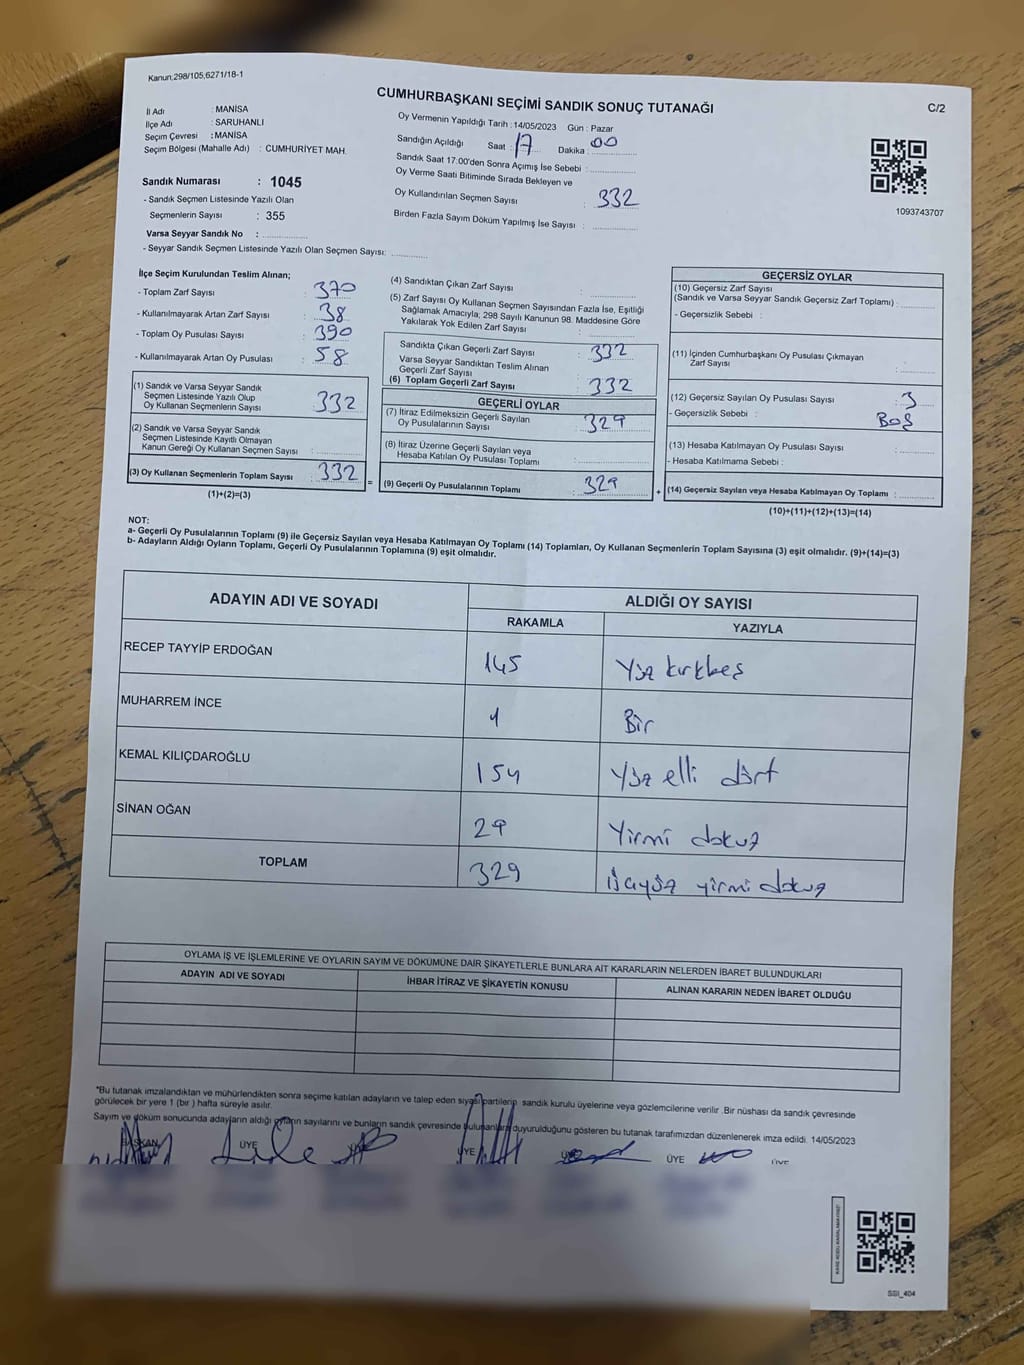 Kanun,298/105,6271/18-1
CUMHURBAŞKANI SEÇİMİ SANDIK SONUÇ TUTANAĞI
C/2
İl Adı : MANİSA
İlçe Adı : SARUHANLI
Seçim Çevresi : MANİSA
Seçim Bölgesi (Mahalle Adı) : CUMHURİYET MAH.
Sandık Numarası : 1045
- Sandık Seçmen Listesinde Yazılı Olan
Seçmenlerin Sayısı : 355
Varsa Seyyar Sandık No :
- Seyyar Sandık Seçmen Listesinde Yazılı Olan Seçmen Sayısı:
Oy Vermenin Yapıldığı Tarih : 14/05/2023 Gün : Pazar
Sandığın Açıldığı Saat : 17 Dakika : 00
Sandık Saat 17.00'den Sonra Açımış İse Sebebi :
Oy Verme Saati Bitiminde Sırada Bekleyen ve
Oy Kullandırılan Seçmen Sayısı : 332
Birden Fazla Sayım Döküm Yapılmış İse Sayısı :
1093743707
İlçe Seçim Kurulundan Teslim Alınan;
- Toplam Zarf Sayısı : 370
- Kullanılmayarak Artan Zarf Sayısı : 38
- Toplam Oy Pusulası Sayısı : 390
- Kullanılmayarak Artan Oy Pusulası : 58
(1) Sandık ve Varsa Seyyar Sandık
Seçmen Listesinde Yazılı Olup
Oy Kullanan Seçmenlerin Sayısı : 332
(2) Sandık ve Varsa Seyyar Sandık
Seçmen Listesinde Kayıtlı Olmayan
Kanun Gereği Oy Kullanan Seçmen Sayısı :
(3) Oy Kullanan Seçmenlerin Toplam Sayısı : 332
(1)+(2)=(3)
=
(4) Sandıktan Çıkan Zarf Sayısı :
(5) Zarf Sayısı Oy Kullanan Seçmen Sayısından Fazla İse, Eşitliği
Sağlamak Amacıyla; 298 Sayılı Kanunun 98. Maddesine Göre
Yakılarak Yok Edilen Zarf Sayısı :
Sandıkta Çıkan Geçerli Zarf Sayısı : 332
Varsa Seyyar Sandıktan Teslim Alınan
Geçerli Zarf Sayısı
(6) Toplam Geçerli Zarf Sayısı : 332
GEÇERLİ OYLAR
(7) İtiraz Edilmeksizin Geçerli Sayılan
Oy Pusulalarının Sayısı : 329
(8) İtiraz Üzerine Geçerli Sayılan veya
Hesaba Katılan Oy Pusulası Toplamı :
(9) Geçerli Oy Pusulalarının Toplamı : 329
+
GEÇERSİZ OYLAR
(10) Geçersiz Zarf Sayısı
(Sandık ve Varsa Seyyar Sandık Geçersiz Zarf Toplamı) :
- Geçersizlik Sebebi :
(11) İçinden Cumhurbaşkanı Oy Pusulası Çıkmayan
Zarf Sayısı :
(12) Geçersiz Sayılan Oy Pusulası Sayısı : 3
- Geçersizlik Sebebi : Boş
(13) Hesaba Katılmayan Oy Pusulası Sayısı :
- Hesaba Katılmama Sebebi :
(14) Geçersiz Sayılan veya Hesaba Katılmayan Oy Toplamı :
(10)+(11)+(12)+(13)=(14)
NOT:
a- Geçerli Oy Pusulalarının Toplamı (9) ile Geçersiz Sayılan veya Hesaba Katılmayan Oy Toplamı (14) Toplamları, Oy Kullanan Seçmenlerin Toplam Sayısına (3) eşit olmalıdır. (9)+(14)=(3)
b- Adayların Aldığı Oyların Toplamı, Geçerli Oy Pusulalarının Toplamına (9) eşit olmalıdır.
ADAYIN ADI VE SOYADI
ALDIĞI OY SAYISI
RAKAMLA YAZIYLA
RECEP TAYYİP ERDOĞAN 145 Yüz kırkbeş
MUHARREM İNCE 1 Bir
KEMAL KILIÇDAROĞLU 154 Yüz elli dört
SİNAN OĞAN 29 Yirmi dokuz
TOPLAM 329 üçyüz yirmi dokuz
OYLAMA İŞ VE İŞLEMLERİNE VE OYLARIN SAYIM VE DÖKÜMÜNE DAİR ŞİKAYETLERLE BUNLARA AİT KARARLARIN NELERDEN İBARET BULUNDUKLARI
ADAYIN ADI VE SOYADI İHBAR İTİRAZ VE ŞİKAYETİN KONUSU ALINAN KARARIN NEDEN İBARET OLDUĞU
*Bu tutanak imzalandıktan ve mühürlendikten sonra seçime katılan adayların ve talep eden siyasi partilerin sandık kurulu üyelerine veya gözlemcilerine verilir .Bir nüshası da sandık çevresinde
görülecek bir yere 1 (bir ) hafta süreyle asılır.
Sayım ve döküm sonucunda adayların aldığı oyların sayılarını ve bunların sandık çevresinde bulunanlara duyurulduğunu gösteren bu tutanak tarafımızdan düzenlenerek imza edildi. 14/05/2023
BAŞKAN ÜYE ÜYE ÜYE ÜYE ÜYE ÜYE
SSI_404